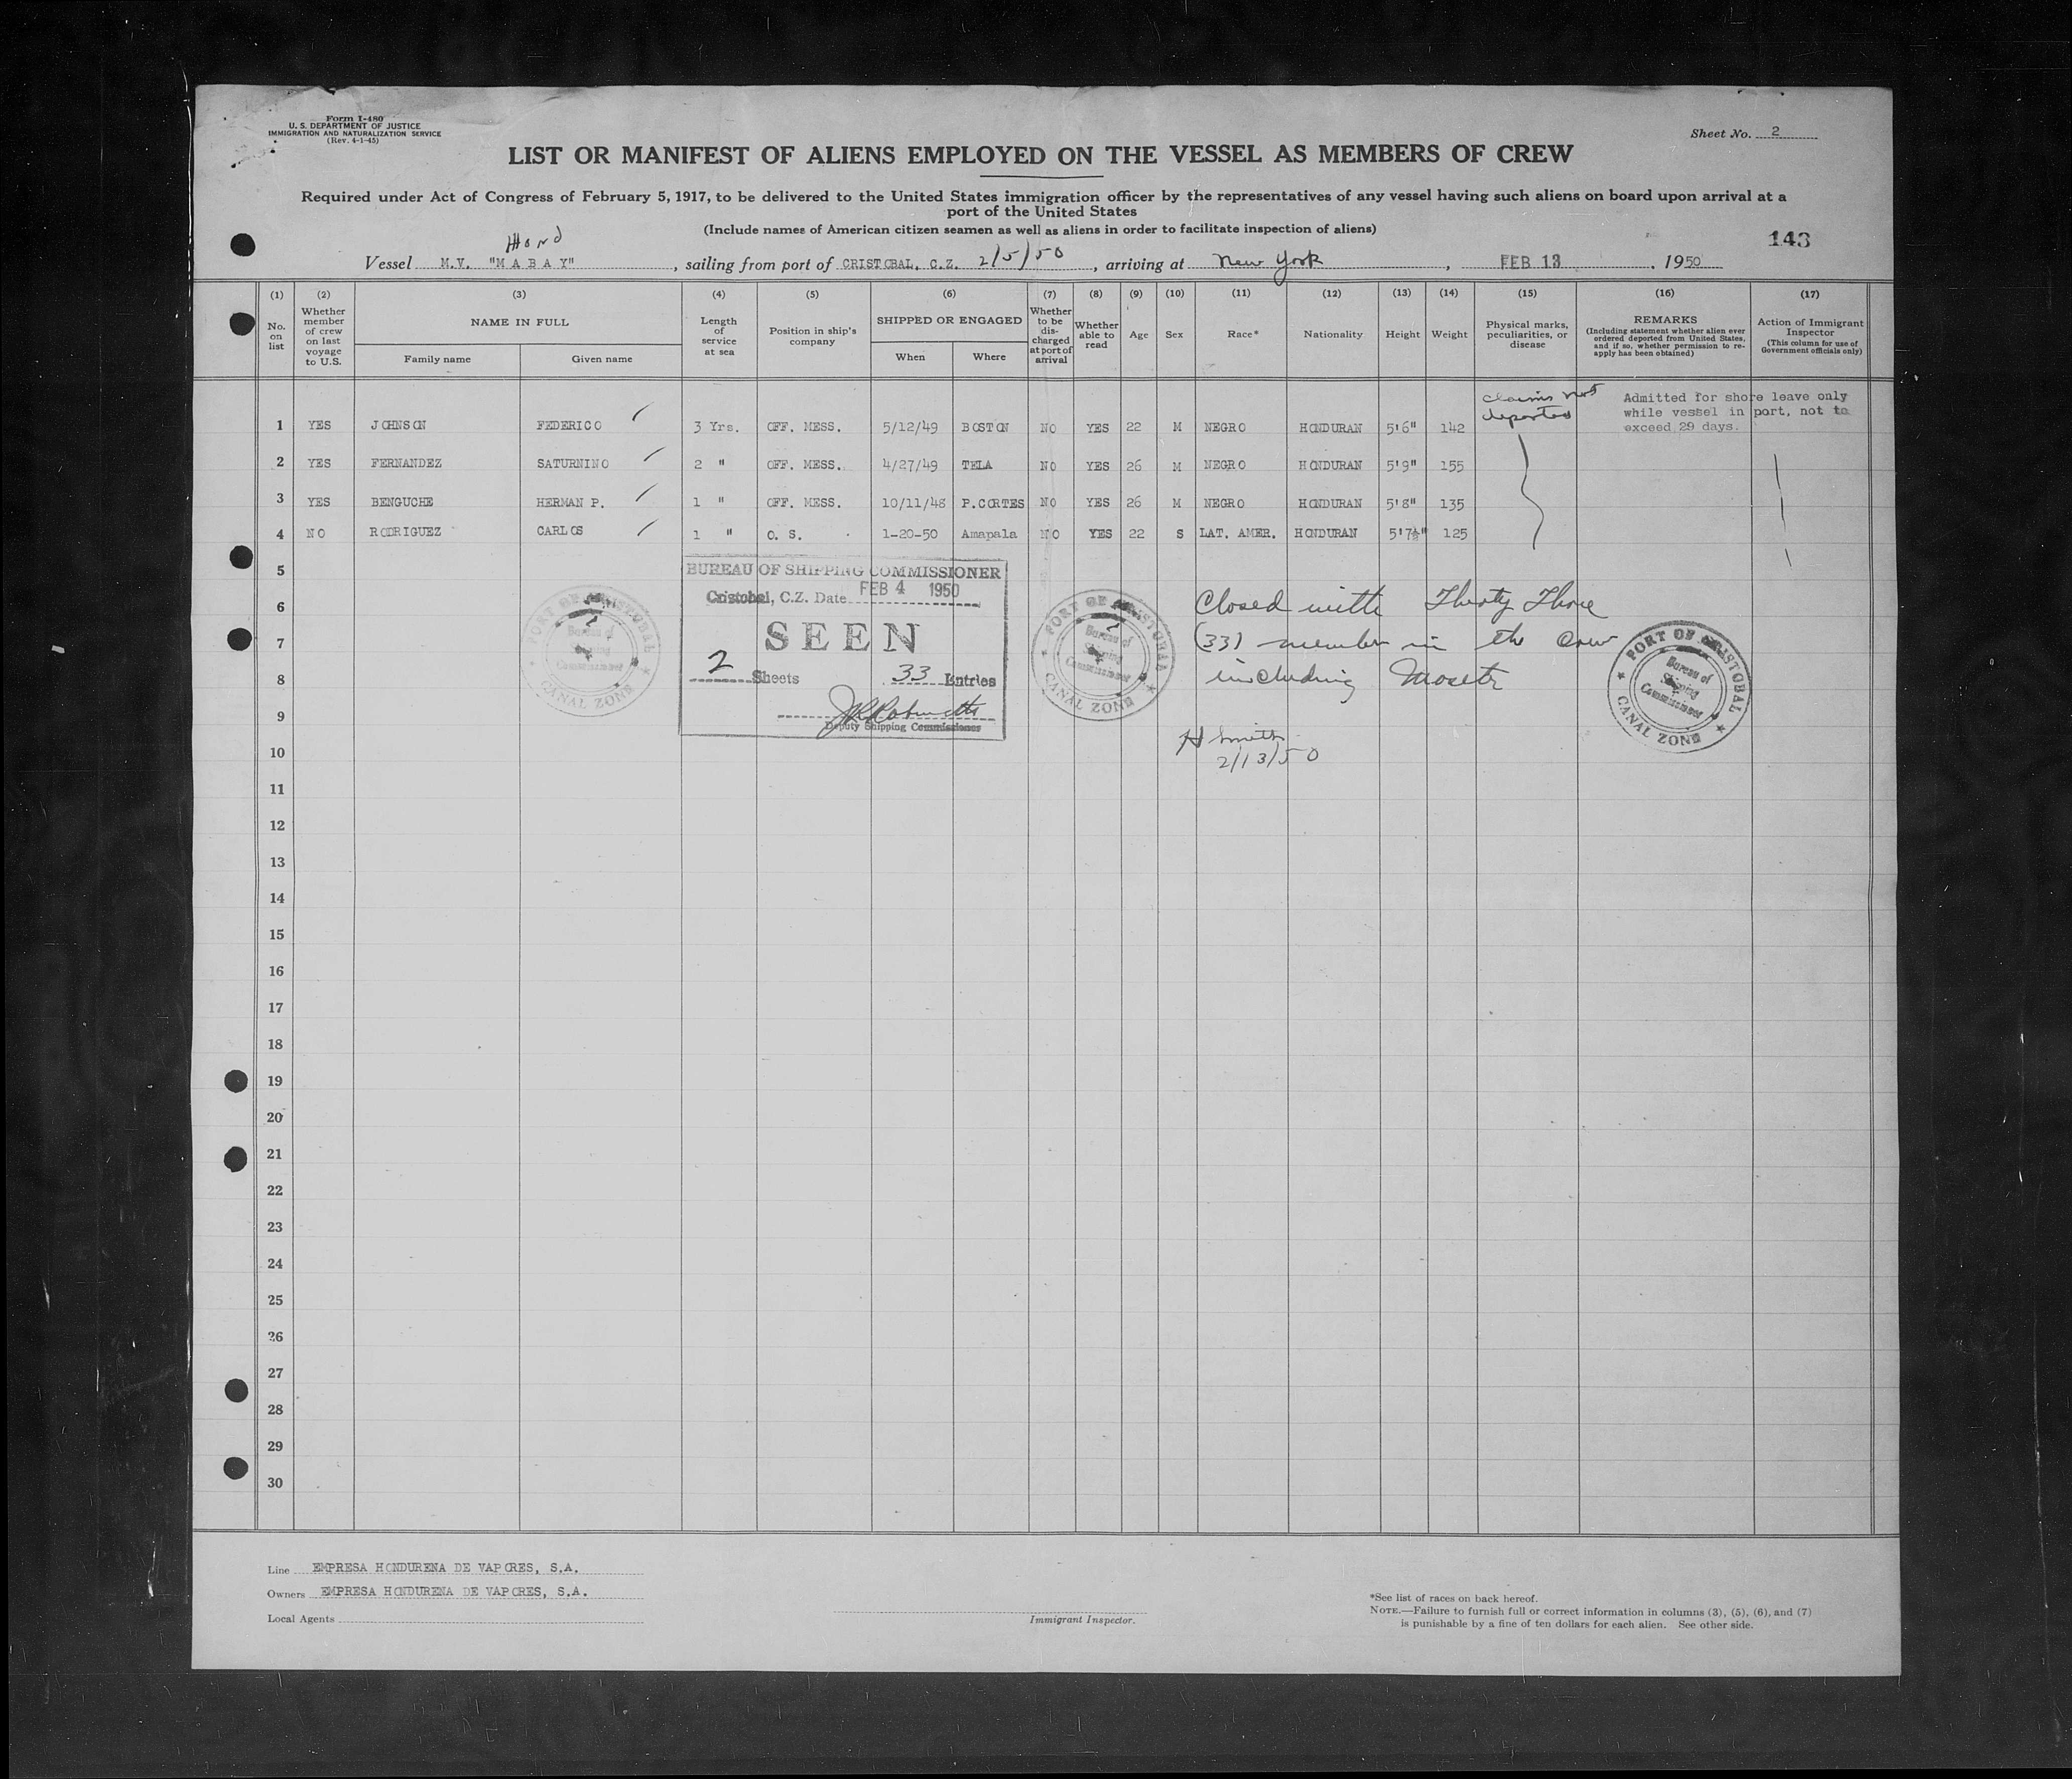 Form I-480
U. S. DEPARTMENT OF JUSTICE
IMMIGRATION AND NATURALIZATION SERVICE
(Rev. 4-1-45)
Sheet No. 2
LIST OR MANIFEST OF ALIENS EMPLOYED ON THE VESSEL AS MEMBERS OF CREW
Required under Act of Congress of February 5, 1917, to be delivered to the United States immigration officer by the representatives of any vessel having such aliens on board upon arrival at a
port of the United States
(Include names of American citizen seamen as well as aliens in order to facilitate inspection of aliens)
143
Hond
Vessel M.V. "MABAY", sailing from port of CRISTOBAL, C.Z. 2/5/50, arriving at New York, FEB 13, 1950
(1) (2) (3) (4) (5) (6) (7) (8) (9) (10) (11) (12) (13) (14) (15) (16) (17)
No. on list
Whether member of crew on last voyage to U.S.
NAME IN FULL
Family name
Given name
Length of service at sea
Position in ship's company
SHIPPED OR ENGAGED
When
Where
Whether to be discharged at port of arrival
Whether able to read
Age
Sex
Race*
Nationality
Height
Weight
Physical marks, peculiarities, or disease
REMARKS
(Including statement whether alien ever ordered deported from United States, and if so, whether permission to reapply has been obtained)
Action of Immigrant Inspector
(This column for use of Government officials only)
claims not
deported
Admitted for shore leave only
while vessel in port, not to
exceed 29 days.
1 YES JOHNSON FEDERICO 3 Yrs. OFF. MESS. 5/12/49 BOSTON NO YES 22 M NEGRO HONDURAN 5'6" 142
2 YES FERNANDEZ SATURNINO 2 " OFF. MESS. 4/27/49 TELA NO YES 26 M NEGRO HONDURAN 5'9" 155
3 YES BENGUCHE HERMAN P. 1 " OFF. MESS. 10/11/48 P.CORTES NO YES 26 M NEGRO HONDURAN 5'8" 135
4 NO RODRIGUEZ CARLOS 1 " O. S. 1-20-50 Amapala NO YES 22 S LAT. AMER. HONDURAN 5'7½" 125
5
6
7
8
9
10
11
12
13
14
15
16
17
18
19
20
21
22
23
24
25
26
27
28
29
30
BUREAU OF SHIPPING COMMISSIONER
Cristobal, C.Z. Date FEB 4 1950
SEEN
2 Sheets 33 Entries
Deputy Shipping Commissioner
PORT OF CRISTOBAL
Bureau of
Shipping
Commissioner
CANAL ZONE
PORT OF CRISTOBAL
Bureau of
Shipping
Commissioner
CANAL ZONE
Closed with Thirty Three
(33) member in the Crew
including Master
H Smith
2/13/50
PORT OF CRISTOBAL
Bureau of
Shipping
Commissioner
CANAL ZONE
Line EMPRESA HONDURENA DE VAPORES, S.A.
Owners EMPRESA HONDURENA DE VAPORES, S.A.
Local Agents
Immigrant Inspector.
*See list of races on back hereof.
NOTE.—Failure to furnish full or correct information in columns (3), (5), (6), and (7)
is punishable by a fine of ten dollars for each alien. See other side.